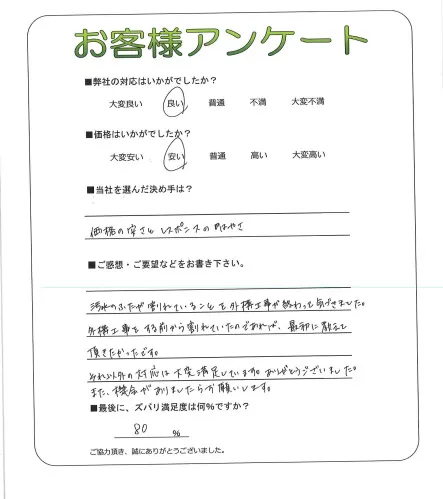 お客様アンケート
■弊社の対応はいかがでしたか?
大変良い 良い 普通 不満 大変不満
■価格はいかがでしたか?
大変安い 安い 普通 高い 大変高い
■当社を選んだ決め手は?
価格の安さと レスポンスのはやさ
■ご感想・ご要望などをお書き下さい。
汚水のふたが割れていることを外構工事が終わって気づきました。
外構工事をする前から割れていたのであれば、最初に教えて
頂きたかったです。
それ以外の対応は大変満足しています。ありがとうございました。
また、機会がありましたらお願いします。
■最後に、ズバリ満足度は何%ですか?
80 %
ご協力頂き、誠にありがとうございました。